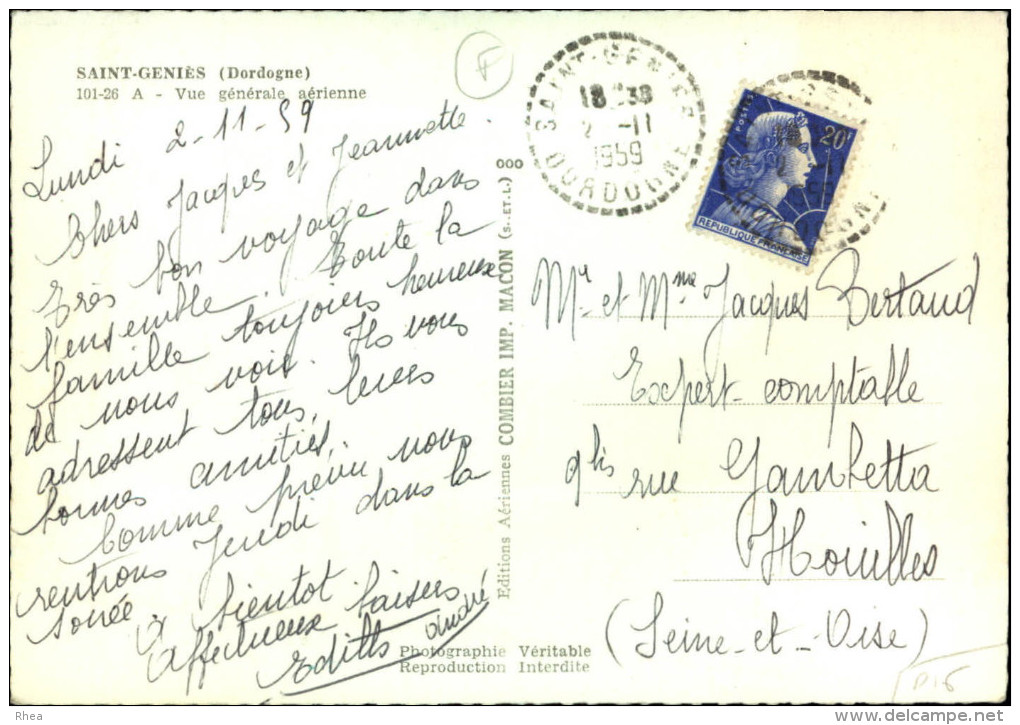 SAINT-GENIÈS (Dordogne)
101-26 A - Vue générale aérienne
Lundi 2-11-59
Chers Jacques et Jeannette.
Très bon voyage dans
l'ensemble. Toute la
famille toujours heureuse
de nous voir. Ils vous
adressent tous, leurs
bonnes amitiés.
Comme prévu nous
rentrons Jeudi dans la
soirée
A bientôt
Affectueux baisers
Edith André
Editions Aériennes COMBIER IMP. MACON (S.-ET-L.)
ooo
Photographie Véritable
Reproduction Interdite
F
SAINT-GENIES
18 H 30
2 -11
1959
DORDOGNE
POSTES
20F
REPUBLIQUE FRANÇAISE
Mr et Mme Jacques Bertaud
Expert-comptable
9 bis rue Gambetta
Houilles
(Seine-et-Oise)
Rhea
www.delcampe.net